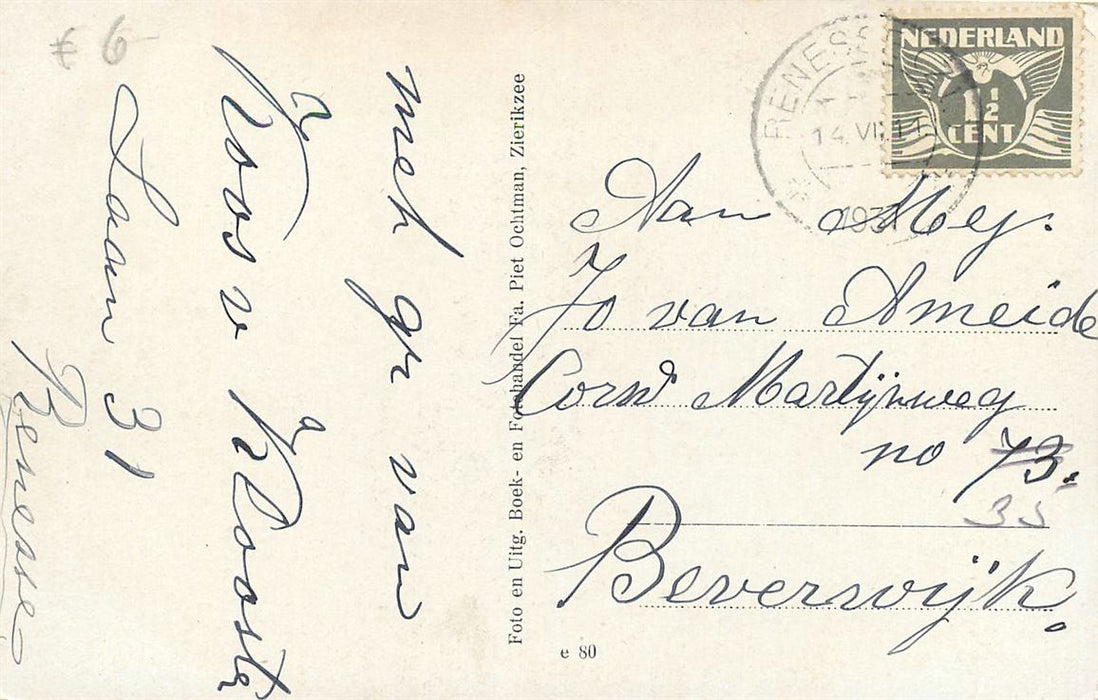 € 6-
met gr van
Koos v Klooste
Laan 31
Renesse
Foto en Uitg. Boek- en Fotohandel Fa. Piet Ochtman, Zierikzee
e 80
RENESSE
14 VII
193
NEDERLAND
1 1/2
CENT
Aan Mej.
Jo van Ameide
Corns Martijnweg
no 73.
35
Beverwijk.